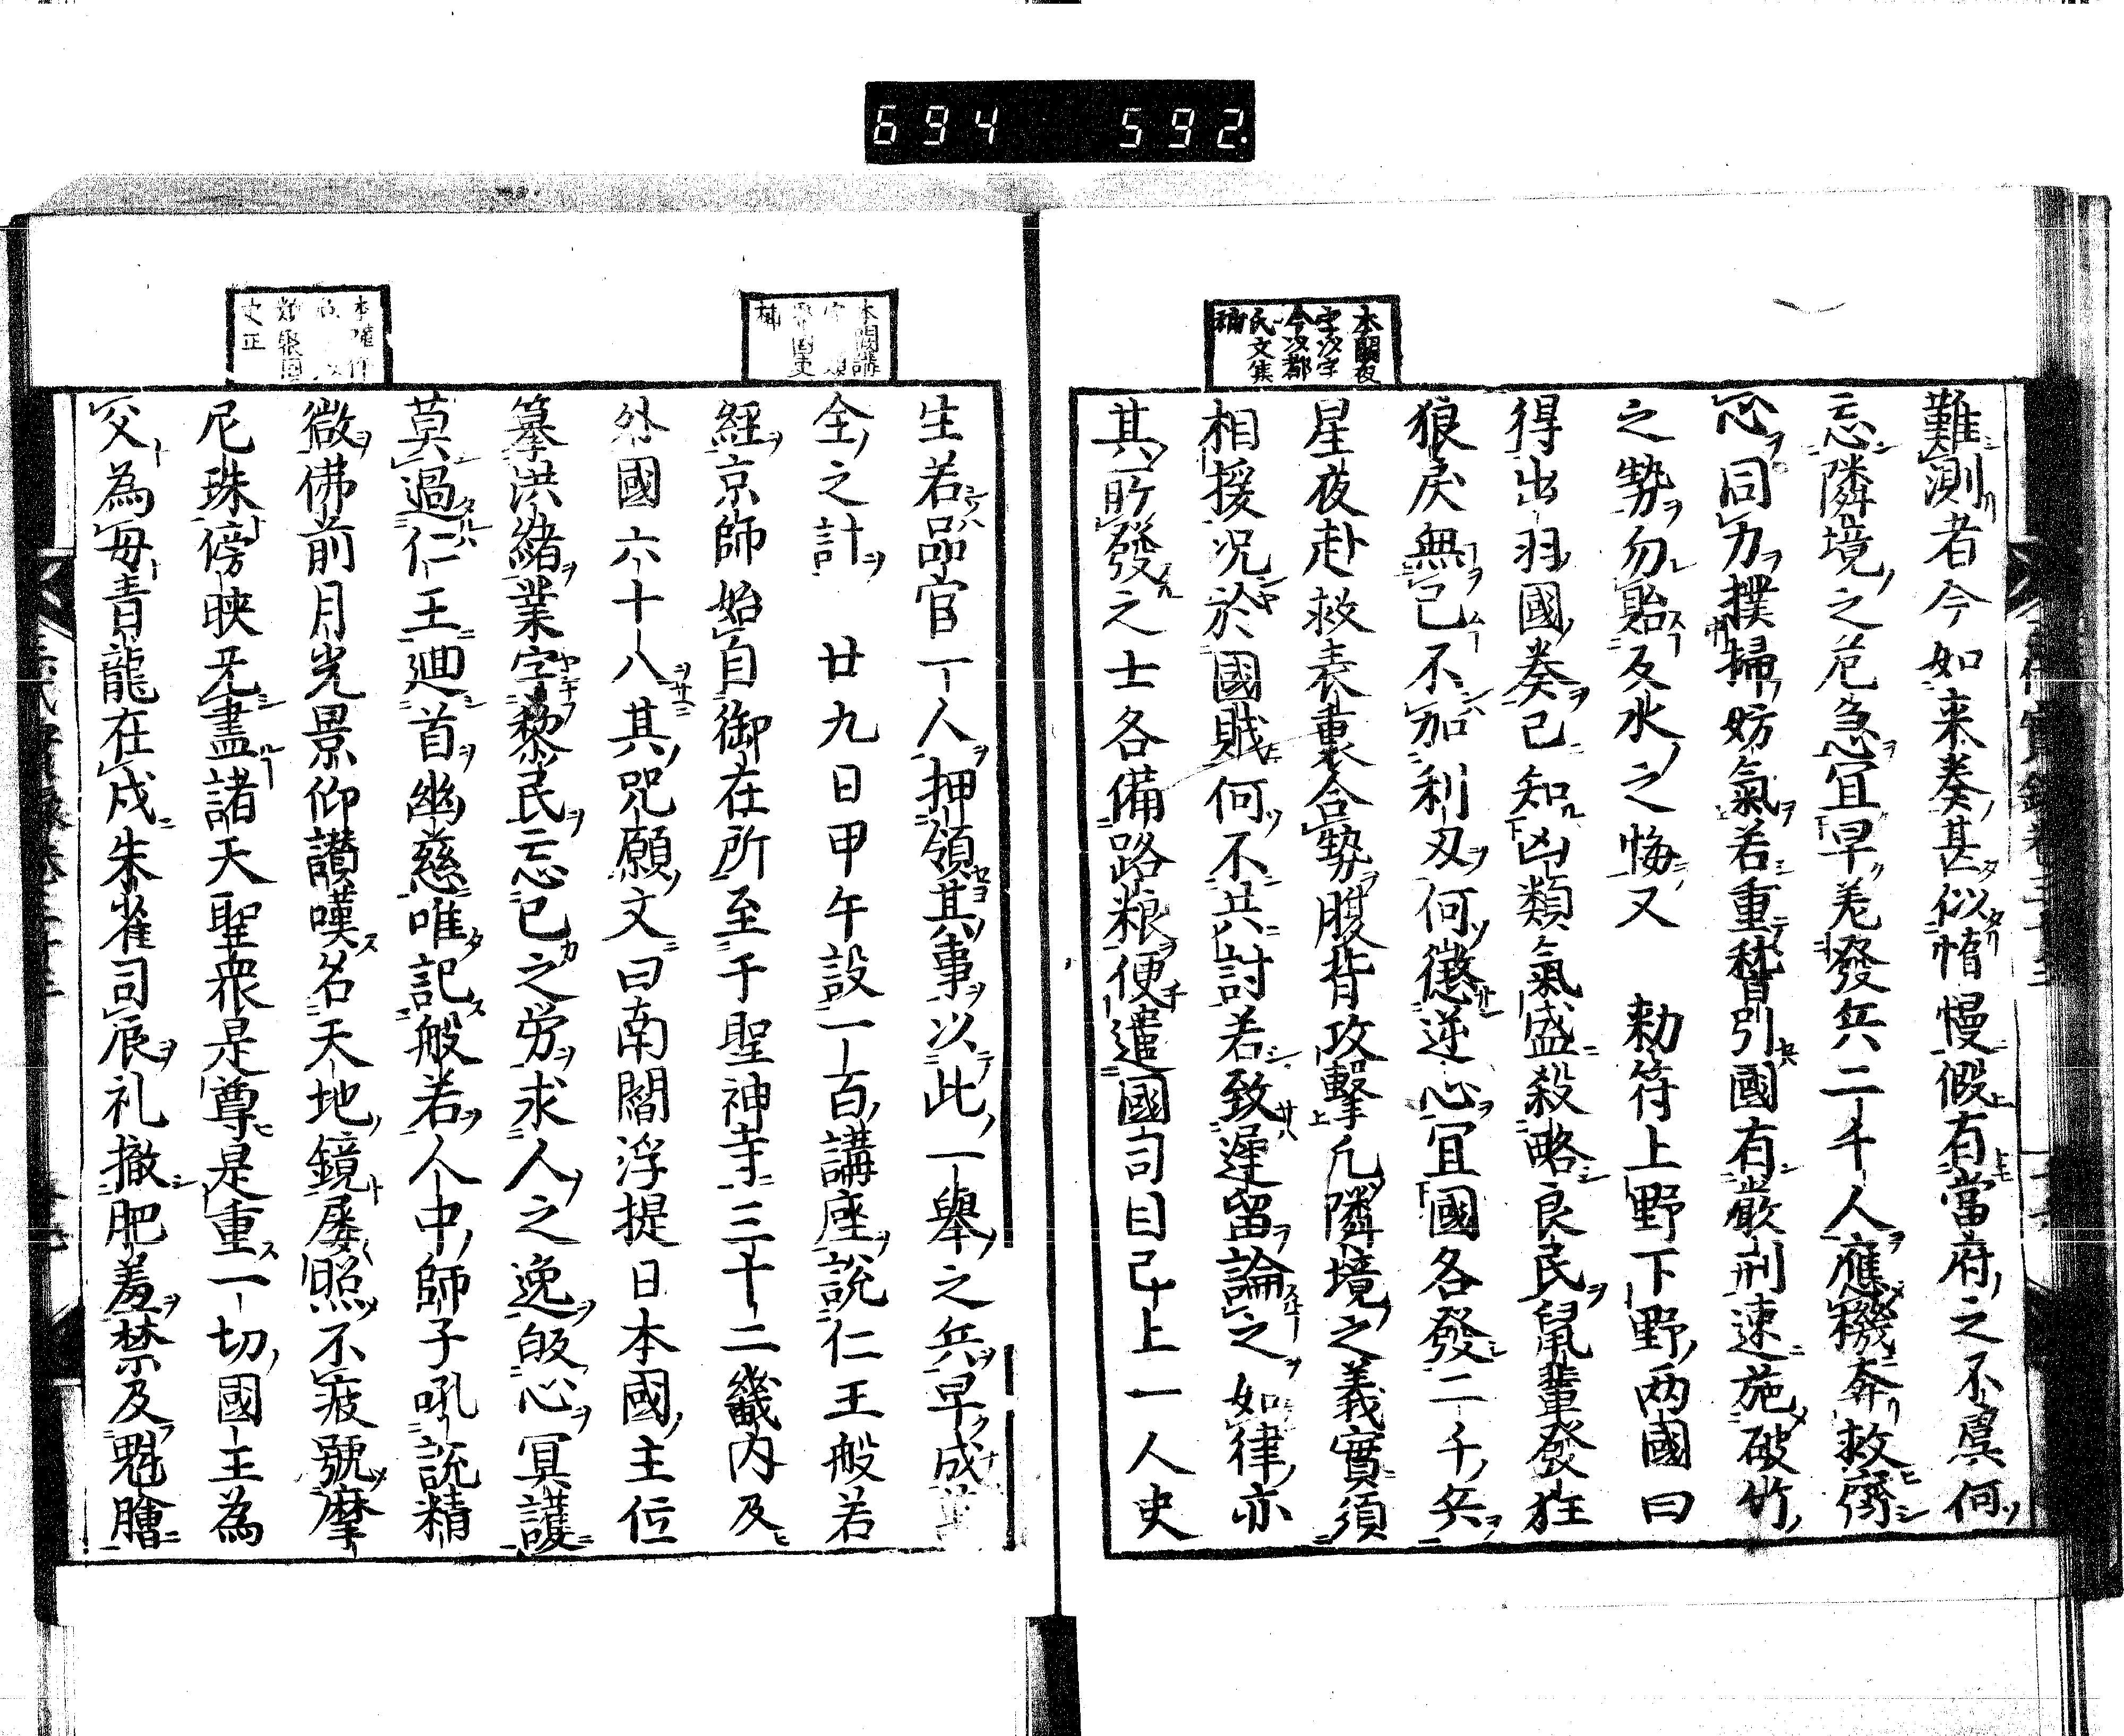 694 592
本闕夜
字汝字
今汝都
氏文集
補
難測者今如来奏甚似惰慢假有當府之不虞何
忘隣境之危急宜早差發兵二千人應機奔救齊
心同力撲掃妨氣若重稽引國有嚴刑速施破竹
之勢勿貽反水之悔又 勅符上野下野兩國曰
得出羽國奏已知凶類氣盛殺略良民鼠輩發狂
狼戻無已不加利刃何懲逆心宜國各發二千兵
星夜赴救表裏合勢腹背攻擊凡隣境之義實須
相援况於國賊何不共討若致遲留論之如律亦
其所發之士各備路粮便遣國司目已上一人史
本闕講
聚國史
補
史正
生若品官一人押領其事以此一舉之兵早成
全之計 廿九日甲午設一百講座説仁王般若
經京師始自御在所至于聖神寺三十二畿内及
外國六十八其呪願文曰南閻浮提日本國主位
纂洪緒業字黎民忘已之労求人之逸皈心冥護
莫過仁王迴首幽慈唯記般若人中師子吼説精
微佛前月光景仰讃嘆名天地鏡屡照不疲號摩
尼珠傍映无盡諸天聖衆是尊是重一切國王為
父為母青龍在戍朱雀司辰礼撤肥羞禁及魁膾